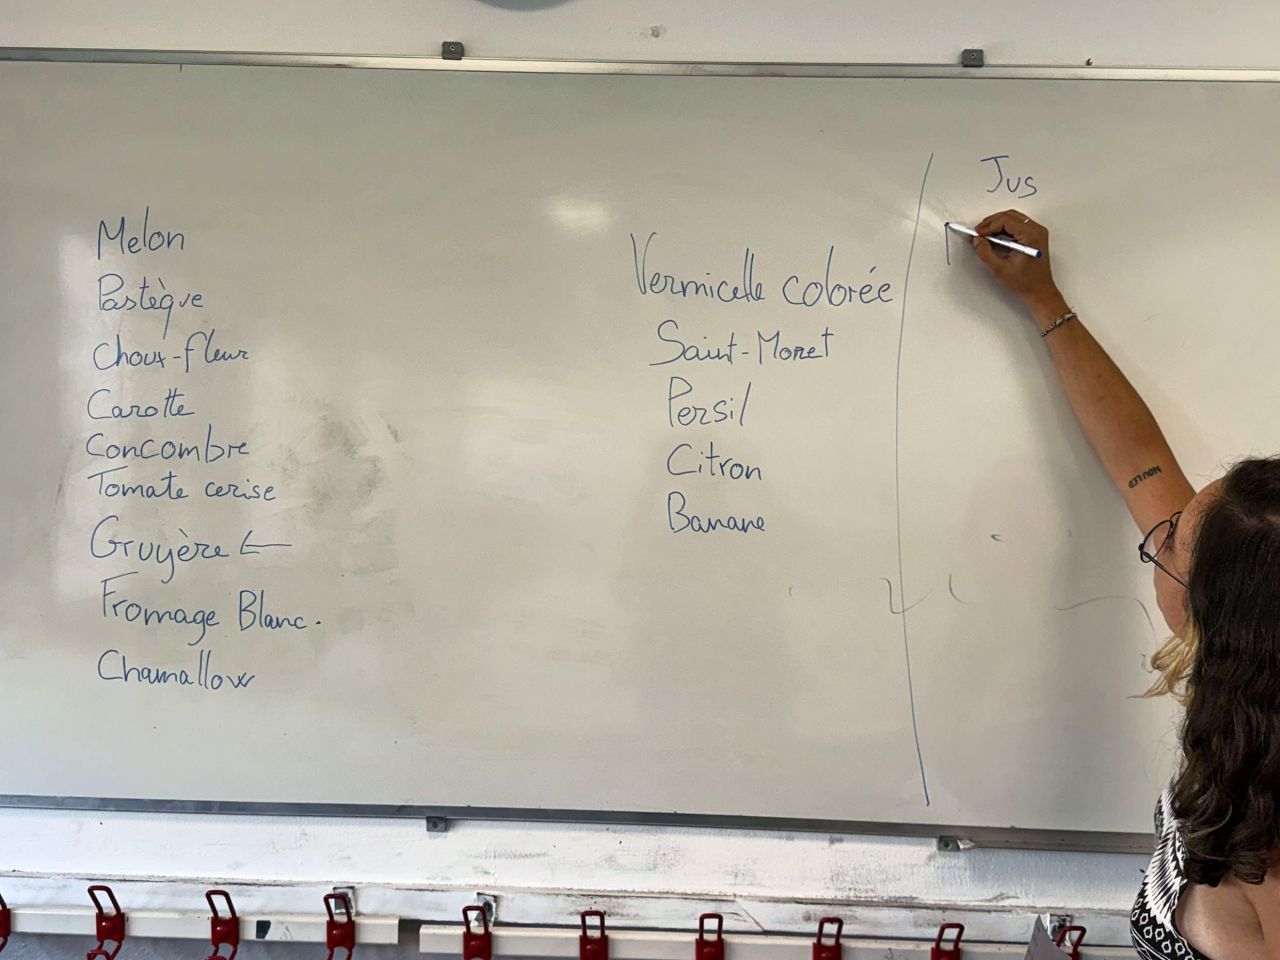 Melon
Pastèque
Choux-fleur
Carotte
Concombre
Tomate cerise
Gruyère ←
Fromage Blanc.
Chamallow
Vermicelle colorée
Saint-Moret
Persil
Citron
Banane
Jus